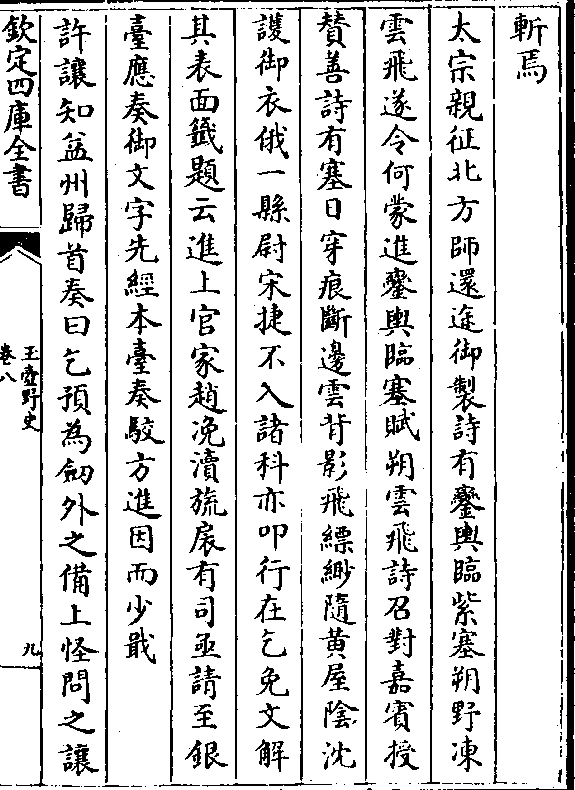 斬焉
太宗親征北方師還途御製詩有鑾輿臨紫塞朔野凍
雲飛遂令何蒙進鑾輿臨塞賦朔雲飛詩召對嘉賓授
贊善詩有塞日穿痕斷邊雲背影飛縹緲隨黄屋陰沈
護御衣俄一縣尉宋捷不入諸科亦叩行在乞免文解
其表面籤題云進上官家趙冕瀆旒扆有司亟請至銀
臺應奏御文字先經本臺奏駮方進因而少戢
許讓知益州歸首奏曰乞預為劒外之備上怪問之讓
欽定四庫全書
玉壺野史
卷八
九